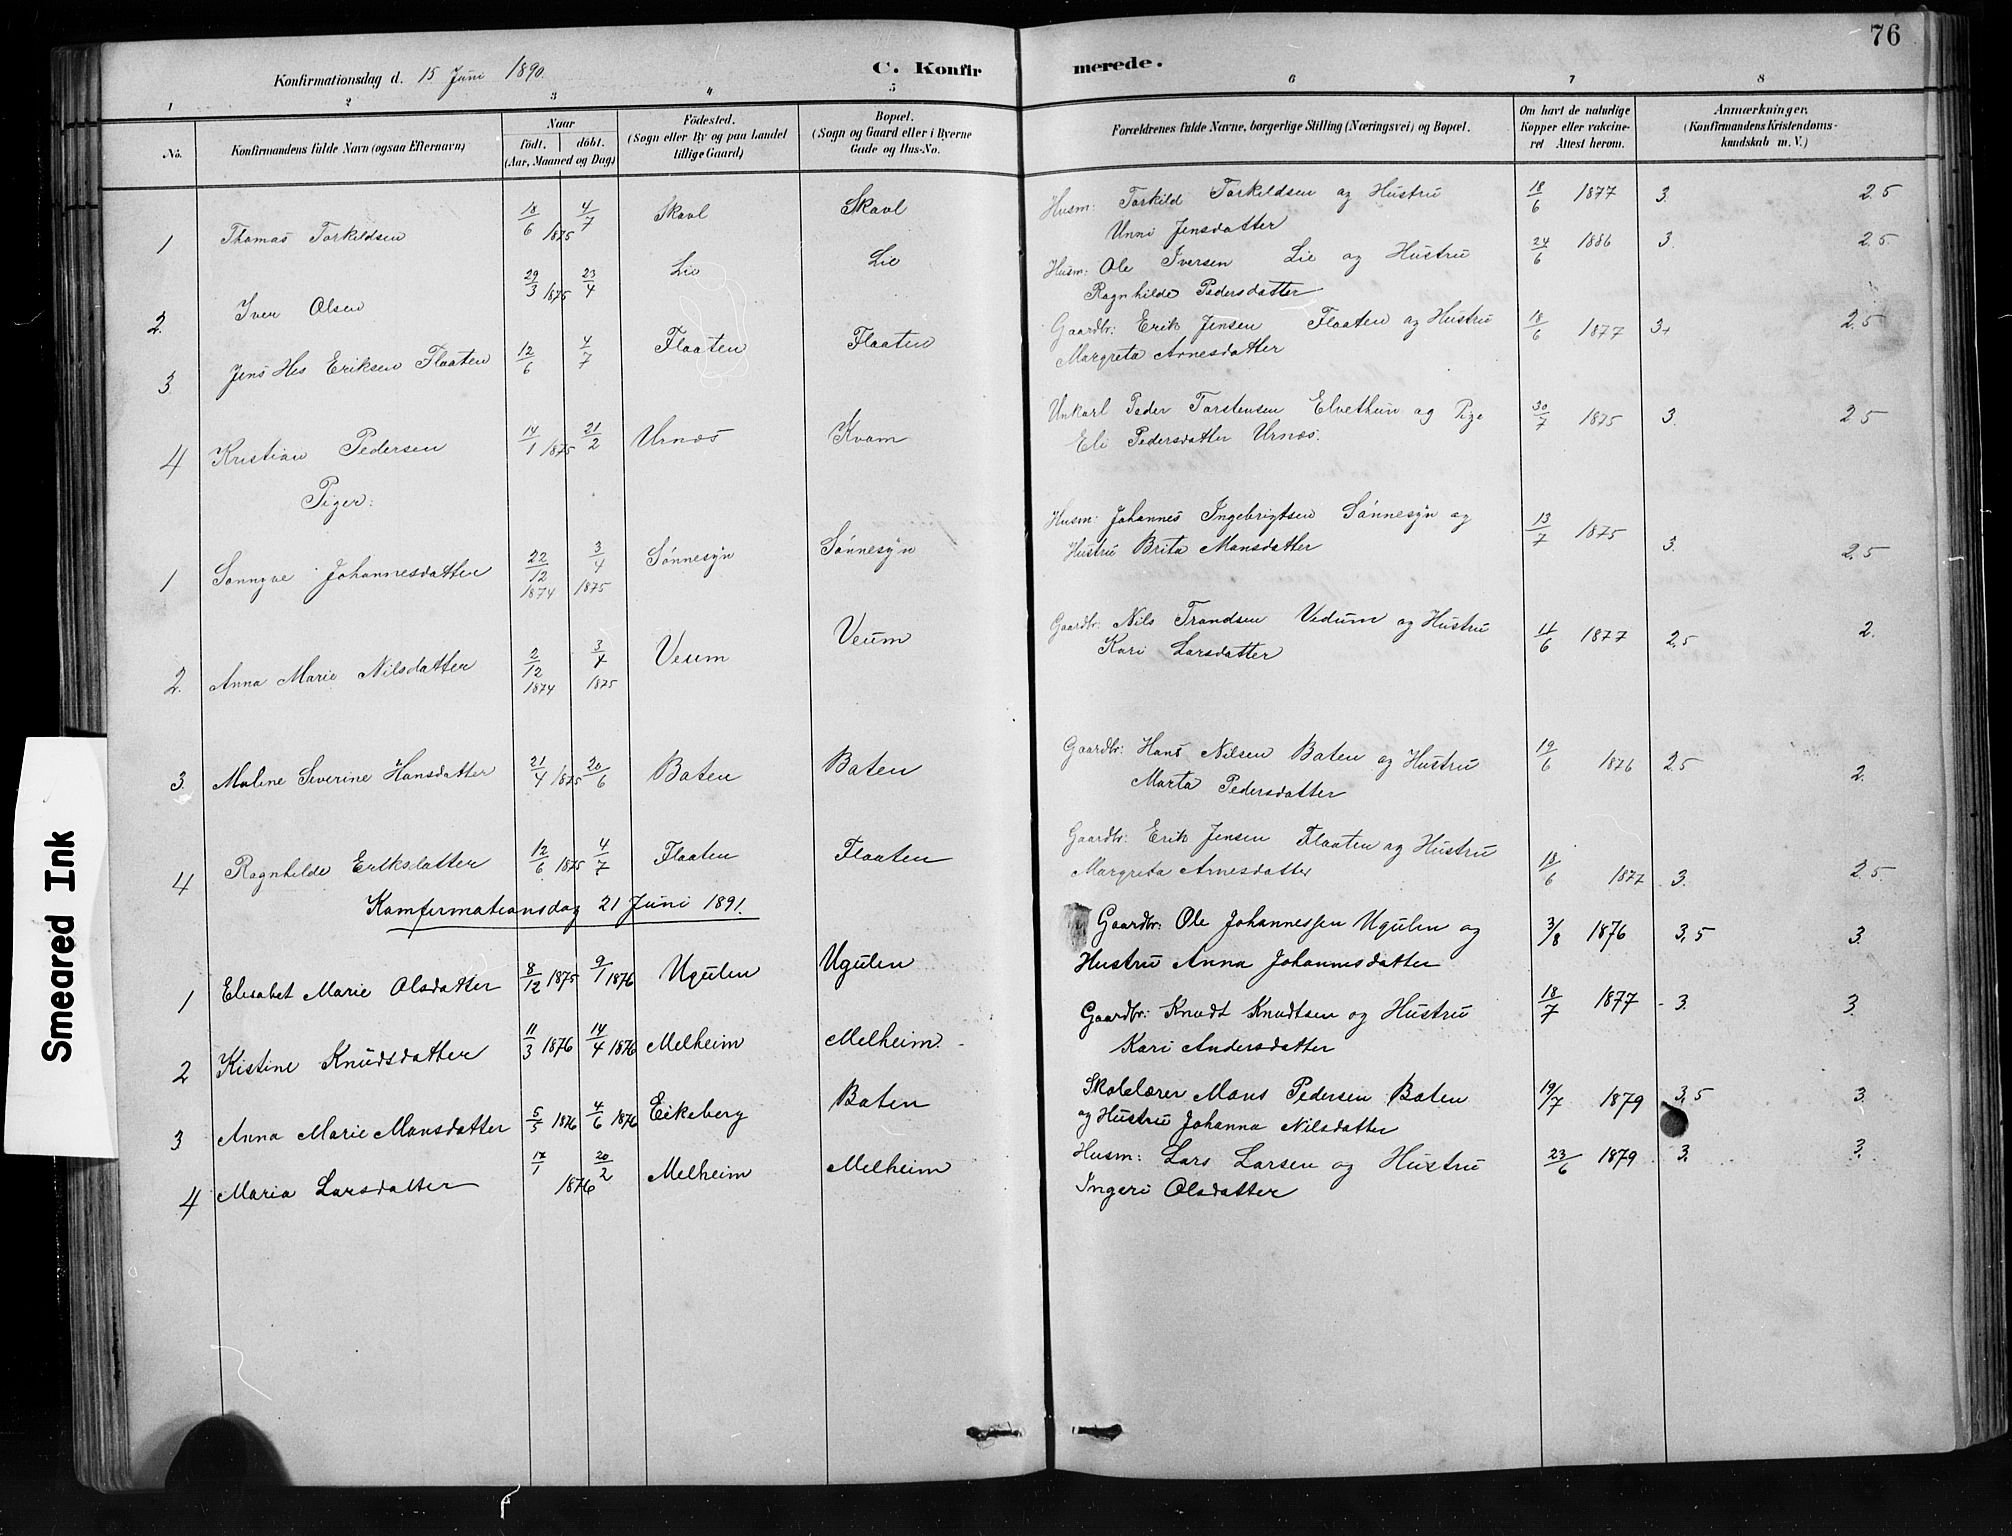 76
Konfirmationsdag d. 15 Juni 1890. C. Konfirmerede.
1 2 3 4 5 6 7 8
No. Konfirmandens fulde Navn (ogsaa Efternavn) Naar födt. döbt. (Aar, Maaned og Dag) Födested. (Sogn eller By og paa Landet tillige Gaard) Bopæl. (Sogn og Gaard eller i Byerne Gade og Hus-No. Forældrenes fulde Navne, borgerlige Stilling (Næringsvei) og Bopæl. Om havt de naturlige Kopper eller vakcineret Attest herom. Anmærkninger, (Konfirmandens Kristendomskundskab m. V.)
1 Thomas Torkildsen 18/6 1875 4/7 Skavl Skavl Husm: Torkild Torkildsen og Hustru 18/6 1877 3. 2.5
Unni Jensdatter
2. Iver Olsen 29/3 1875 23/4 Lie Lie Husm: Ole Iversen Lie og Hustru 24/6 1886 3. 2.5.
Ragnhilde Pedersdatter
3 Jens Hes Eriksen Flaaten 12/6 4/7 Flaaten Flaaten Gaardbr: Erik Jensen Flaaten og Hustru 18/6 1877 3+ 2.5
Margreta Arnesdatter
4 Kristian Pedersen 14/1 1875 21/2 Urnæs Kvam Unkarl Peder Torstensen Elvethun og Pige 30/7 1875 3. 2.5
Eli Pedersdatter Urnæs.
Piger:
1 Sønnyve Johannesdatter 22/12 1874 3/4 1875 Sønnesyn Sønnesyn Husm: Johannes Ingebrigtsen Sønnesyn og 13/7 1875 3. 2.5
Hustru Brita Monsdatter
2. Anna Marie Nilsdatter 2/12 1874 3/4 1875 Veum Veum Gaardbr: Nils Trondsen Vedum og Hustru 11/6 1877 2.5 2.
Kari Larsdatter
3. Maline Severine Hansdatter 21/4 1875 20/6 Baten Baten Gaardbr: Hans Nilsen Baten og Hustru 19/6 1876 2.5 2.
Marta Pedersdatter
4 Ragnhilde Eriksdatter 12/6 1875 4/7 Flaaten Flaaten Gaardbr: Erik Jensen Flaaten og Hustru 18/6 1877 3. 2.5.
Margreta Arnesdatter
Komfirmationsdag 21 Juni 1891.
1 Elisabet Marie Olsdatter 8/12 1875 9/1 1876 Ugulen Ugulen Gaardbr: Ole Johannessen Ugulen og 3/8 1876 3,5 3.
Hustru Anna Johannesdatter
2 Kistine Knudsdatter 11/3 1876 14/4 1876 Melheim Melheim. Gaardbr: Knudt Knudtsen og Hustru 18/7 1877 3. 3.
Kari Andersdatter
3 Anna Marie Monsdatter 5/5 1876 4/6 1876 Eikeberg Baten Skolelærer Mons Pedersen Baten 19/7 1879 3,5 3.
og Hustru Johanna Nilsdatter
4 Maria Larsdatter 17/1 1876 20/2 Melheim Melheim Husm: Lars Larsen og Hustru 23/6 1879 3. 3.
Ingeri Olsdatter
Smeared Ink